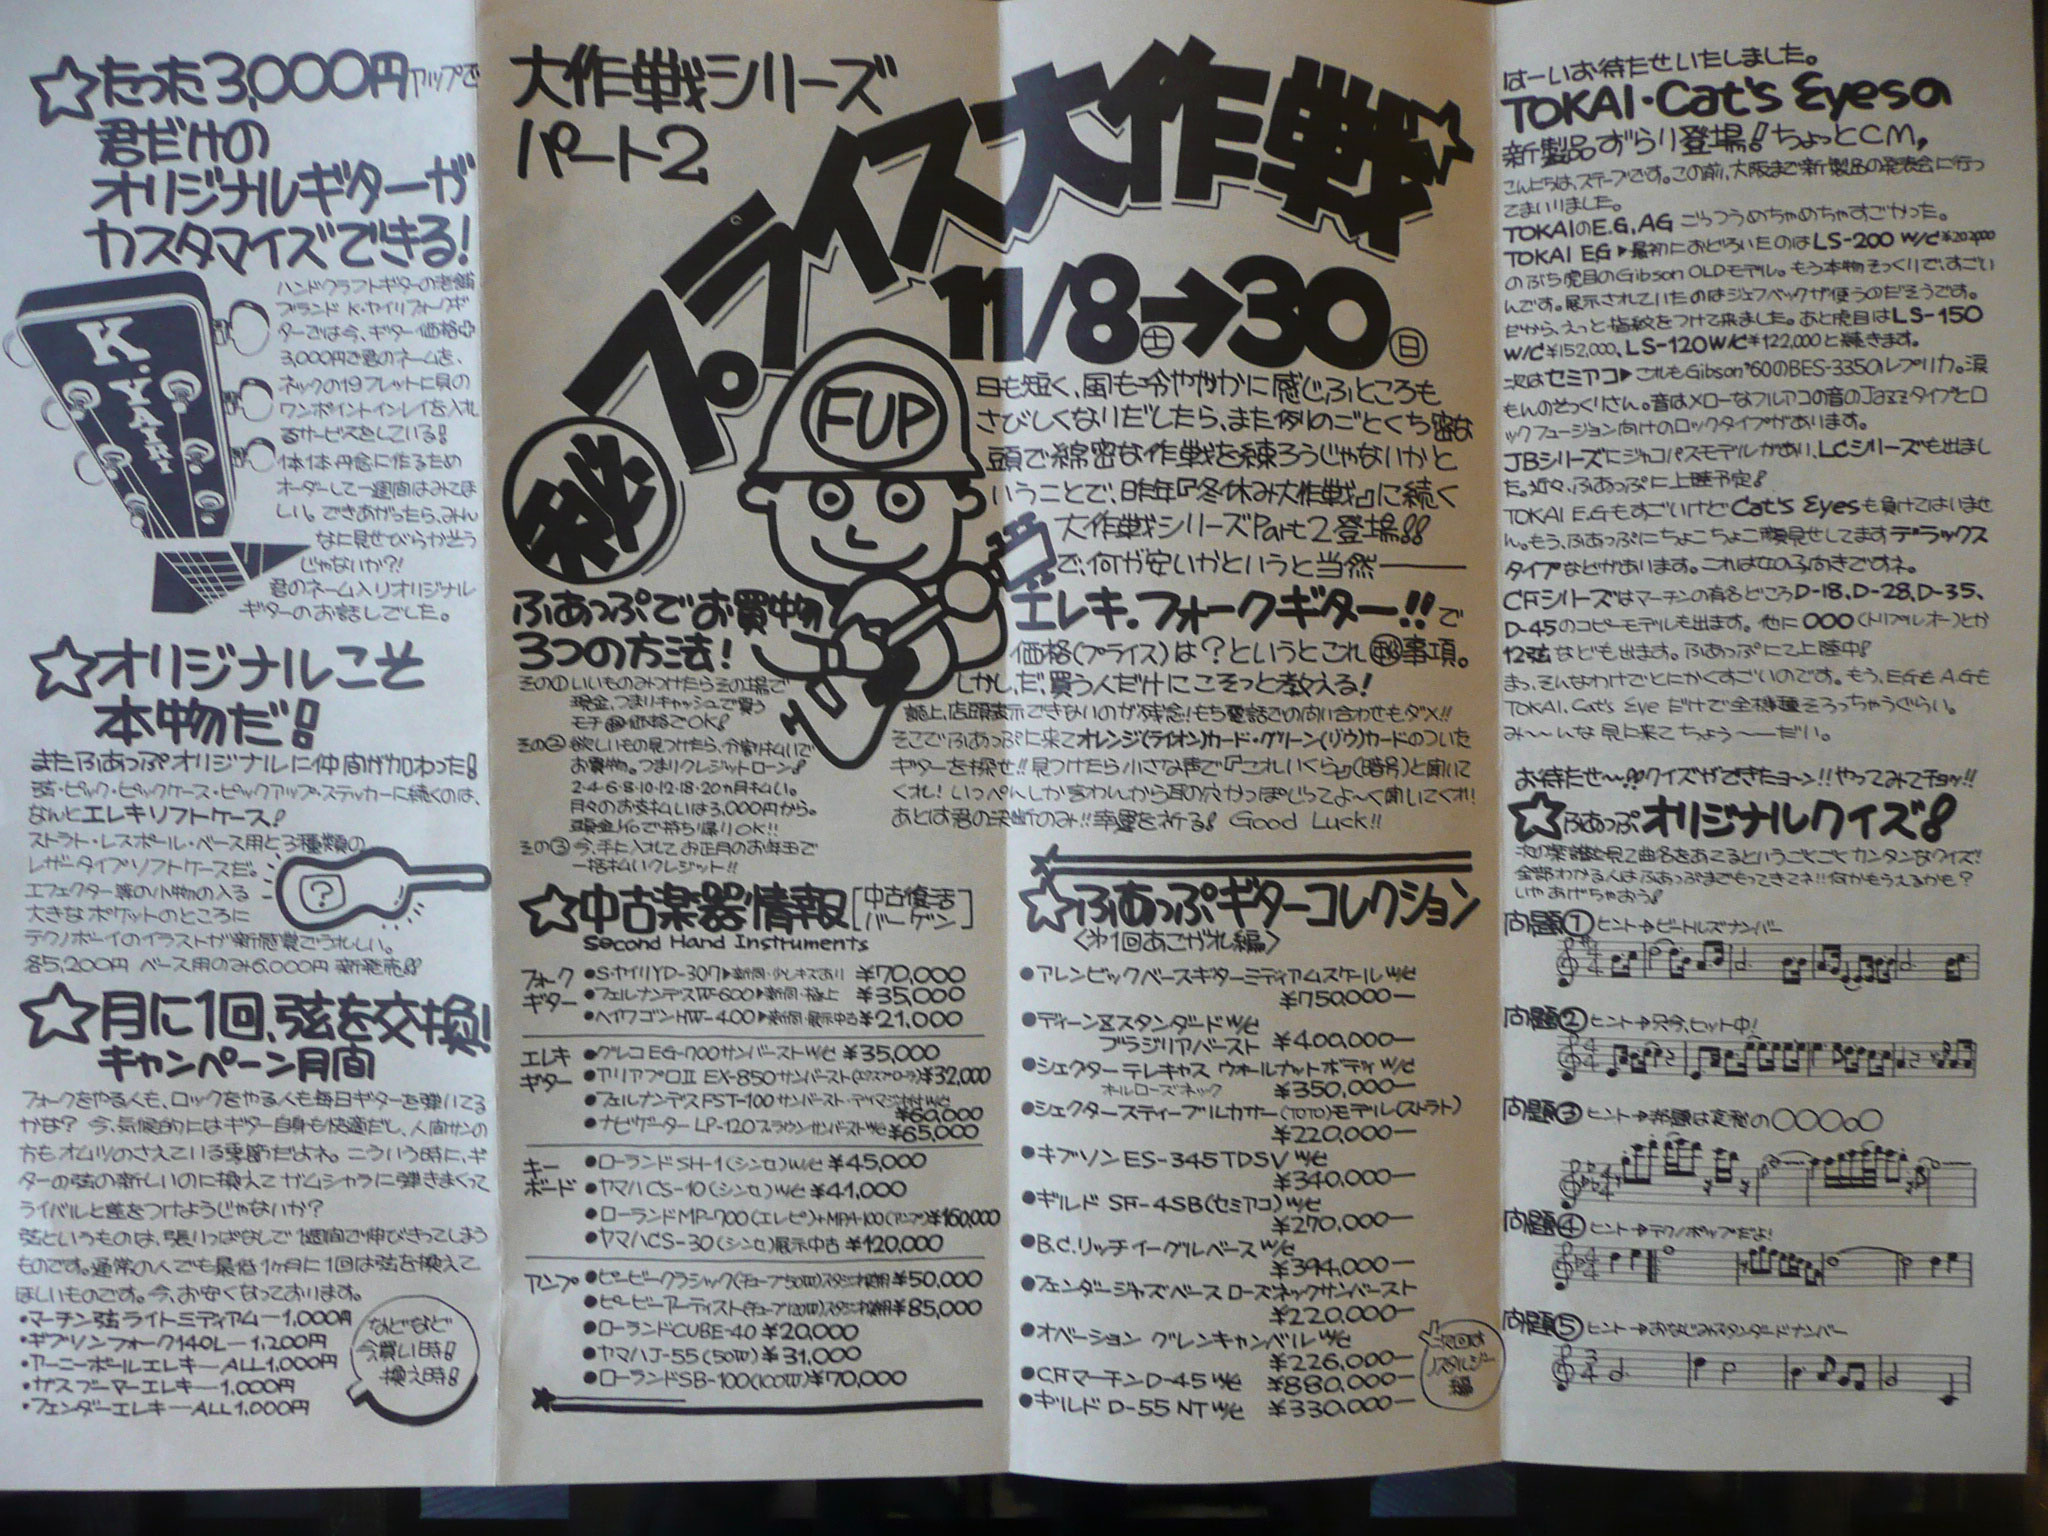 ☆たった3,000円アップで
君だけの
オリジナルギターが
カスタマイズできる!
ハンドクラフトギターの老舗
ブランド K・ヤイリフォークギ
ターでは今、ギター価格
3,000円で君のネームを、
ネックの19フレットに貝の
ワンポイントインレイを入れ
るサービスをしている!
1本1本丹念に作るため
オーダーして一週間はみてほ
しい。できあがったら、みん
なに見せびらかそう
じゃないか?!
君のネーム入りオリジナル
ギターのお話しでした。
K.YAIRI
☆オリジナルこそ
本物だ!!
またふあっぷオリジナルに仲間が加わった!
弦・ピック・ピックケース・ピックアップ・ステッカーに続くのは、
なんとエレキソフトケース!
ストラト・レスポール・ベース用と3種類の
レザータイプソフトケースだ。
エフェクター等の小物の入る
大きなポケットのところに
テクノボーイのイラストが新感覚でうれしい。
各5,200円 ベース用のみ6,000円 新発売!!
?
☆月に1回、弦を交換!
キャンペーン月間
フォークをやる人も、ロックをやる人も毎日ギターを弾いてる
かな? 今、気候的にはギター自身も快適だし、人間サンの
方もオムツのさえている季節だよネ。こういう時に、ギ
ターの弦の新しいのに換えてガムシャラに弾きまくって
ライバルと差をつけようじゃないか?
弦というものは、張りっぱなしで1週間で伸びきってしまう
ものです。通常の人でも最低1ヶ月に1回は弦を換えて
ほしいものです。今、お安くなっております。
・マーチン弦ライトミディアム―1,000円
・ギブソンフォーク140L―1,200円
・アーニーボールエレキ―ALL1,000円
・ガスブーマーエレキ―1,000円
・フェンダーエレキ―ALL1,000円
などなど
今買い時!
換え時!!
大作戦シリーズ
パート2
㊙プライス大作戦☆
11/8㊏→30㊐
FUP
日も短く、風も冷ややかに感じ、ふところも
さびしくなりだしたら、また例のごとくち密な
頭で綿密な作戦を練ろうじゃないかと
いうことで、昨年『冬休み大作戦』に続く
大作戦シリーズPart2登場!!
で、何が安いかというと当然――
エレキ.フォークギター!!で
価格(プライス)は?というとこれ㊙事項。
しかし、だ、買う人だけにこそっと教える!
店頭表示できないのが残念!もち電話での問い合わせもダメ!!
そこでふあっぷに来てオレンジ(ライオン)カード・グリーン(リウ)カードのついた
ギターを探せ!!見つけたら小さな声で『これいくら』(暗号)と聞いて
くれ!いっぺんしか言わんから耳の穴かっぽじってよ〜く聞いてくれ!
あとは君の決断のみ!!幸運を祈る! Good Luck!!
ふあっぷでお買物
3つの方法!
その① いいものみつけたらその場で
現金、つまりキャッシュで買う
モチ㊙価格でOK!
その② 欲しいもの見つけたら、分割払いで
お買物。つまりクレジットローン!
2・4・6・8・10・12・18・20ヵ月払い。
月々のお支払いは3,000円から。
頭金1/10で持ち帰りOK!!
その③ 今、手に入れてお正月のお年玉で
一括払いクレジット!!
☆中古楽器情報[中古復活バーゲン]
Second Hand Instruments
フォークギター
●S・ヤイリYD-307▶新同・少しキズあり ¥70,000
●フェルナンデスW-600▶新同・極上 ¥35,000
●ヘイワゴンHW-400▶新同・展示中古¥21,000
エレキギター
●グレコEG-700サンバーストW/C ¥35,000
●アリアプロⅡ EX-850サンバースト(エクスプローラ)¥32,000
●フェルナンデスFST-100サンバースト・ディマジオ付W/C
¥60,000
●ナビゲーターLP-120ブラウンサンバーストW/C ¥65,000
キーボード
●ローランドSH-1(シンセ)W/C ¥45,000
●ヤマハCS-10(シンセ)W/C ¥41,000
●ローランドMP-700(エレピ)+MPA-100(アンプ)¥160,000
●ヤマハCS-30(シンセ)展示中古 ¥120,000
アンプ
●ピービークラシック(チューブ50W)スタジオ使用¥50,000
●ピービーアーティスト(チューブ120W)スタジオ使用¥85,000
●ローランドCUBE-40 ¥20,000
●ヤマハJ-55(50W) ¥31,000
●ローランドSB-100(100W)¥70,000
☆ふあっぷギターコレクション
〈第1回あこがれ編〉
●アレンビックベースギターミディアムスケールW/C
¥750,000―
●ディーンZスタンダードW/C
ブラジリアバースト ¥400,000―
●シェクター テレキャス ウォールナットボディW/C
オールローズネック ¥350,000―
●シェクタースティーブルカサー(TOTO)モデル(ストラト)
¥220,000―
●ギブソンES-345TDSV W/C
¥340,000―
●ギルド SF-4SB(セミアコ)W/C
¥270,000―
●B.C.リッチイーグルベースW/C
¥394,000―
●フェンダージャズベース ローズネックサンバースト
¥220,000―
●オベーション グレンキャンベルW/C
¥226,000―
●CFマーチンD-45 W/C ¥880,000―
●ギルド D-55 NT W/C ¥330,000―
次回は
ノスタルジー
編
はーいお待たせいたしました。
TOKAI・Cat's Eyesの
新製品ずらり登場!ちょっとCM,
こんにちは、ステーブです。この前、大阪まで新製品の発表会に行っ
てまいりました。
TOKAIのE.G,AG ごっつうめちゃめちゃすごかった。
TOKAI EG▶最初におどろいたのはLS-200 W/C¥202,000
のぶち虎目のGibson OLDモデル。もう本物そっくりで、すごい
んです。展示されていたのはジェフベックが使うのだそうです。
だから、えっと指紋をつけて来ました。あと虎目はLS-150
W/C¥152,000、LS-120W/C¥122,000と続きます。
次はセミアコ▶これもGibson'60のBES-335のレプリカ。涙
もんのそっくりさん。音はメローなフルアコの音のJazzタイプとロ
ックフュージョン向けのロックタイプがあります。
JBシリーズにジャコパスモデルがあり、LCシリーズも出まし
た。近々、ふあっぷに上陸予定!
TOKAI E.GもすごいけどCat's Eyesも負けてはいませ
ん。もう、ふあっぷにちょこちょこ顔見せしてますデラックス
タイプなどがあります。これは女の子向きですネ。
CFシリーズはマーチンの有名どころD-18、D-28、D-35、
D-45のコピーモデルも出ます。他にOOO(トリプルオー)とか
12弦なども出ます。ふあっぷにて上陸中!
まっ、そんなわけでとにかくすごいのです。もう、E.GもA.Gも
TOKAI、Cat's Eyeだけで全機種そろっちゃうぐらい。
み〜〜んな見に来てちょう――だい。
お待たせ〜!!クイズができたョ〜ン!!やってみてチョッ!!
☆ふあっぷオリジナルクイズ!
次の楽譜を見て曲名をあてるというごくごくカンタンなクイズ!
全部わかる人はふあっぷまでもってきてネ!!何かもらえるかも?
いやあげちゃおう!
問題① ヒント→ビートルズナンバー
問題② ヒント→只今、ヒット中!
問題③ ヒント→邦題は哀愁の○○○○○
問題④ ヒント→テクノポップだよ!
問題⑤ ヒント→おなじみスタンダードナンバー